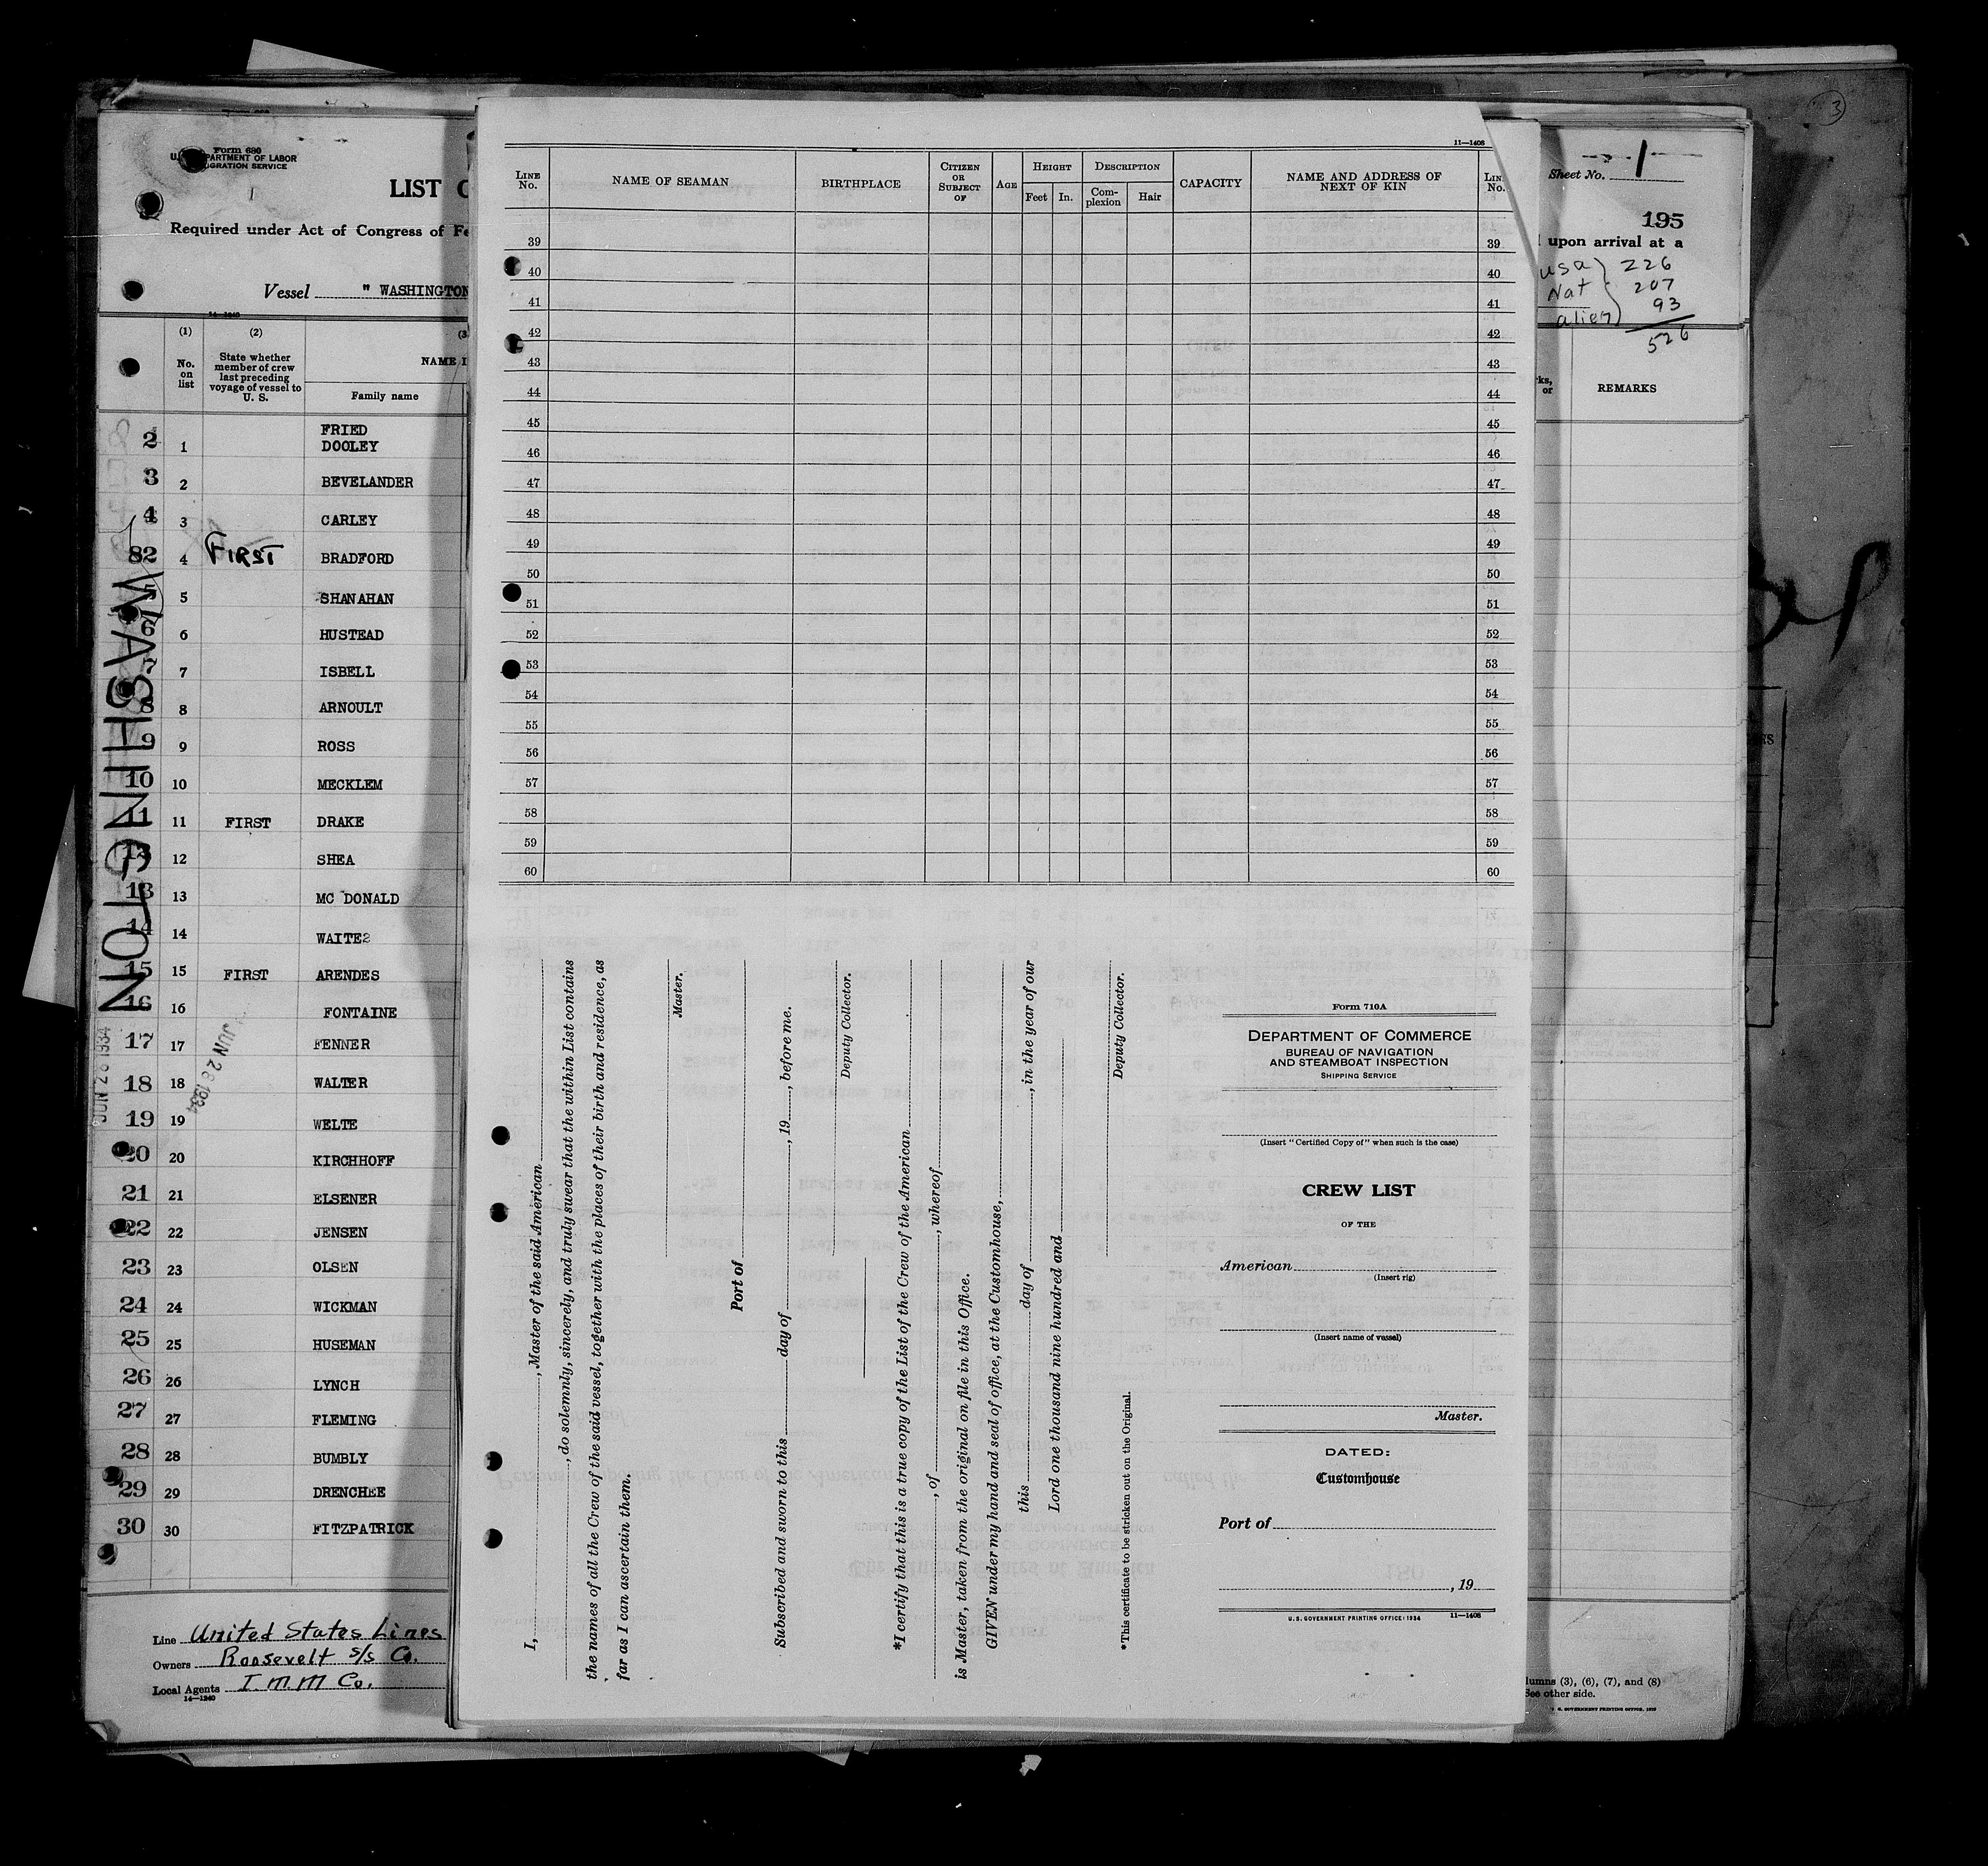 3
Form 680
U. S. DEPARTMENT OF LABOR
IMMIGRATION SERVICE
LIST
Required under Act of Congress of
Vessel " WASHINGTON
14—1240
(1) (2) (3
No. on list
State whether member of crew last preceding voyage of vessel to U. S.
NAME I
Family name
FRIED
2 1 DOOLEY
3 2 BEVELANDER
4 3 CARLEY
82 4 FIRST BRADFORD
5 5 SHANAHAN
6 6 HUSTEAD
7 7 ISBELL
8 8 ARNOULT
9 9 ROSS
10 10 MECKLEM
11 11 FIRST DRAKE
12 12 SHEA
13 13 MC DONALD
14 14 WAITE
15 15 FIRST ARENDES
16 16 FONTAINE
17 17 FENNER
18 18 WALTER
19 19 WELTE
20 20 KIRCHHOFF
21 21 ELSENER
22 22 JENSEN
23 23 OLSEN
24 24 WICKMAN
25 25 HUSEMAN
26 26 LYNCH
27 27 FLEMING
28 28 BUMBLY
29 29 DRENCHEE
30 30 FITZPATRICK
WASHINGTON
JUN 28 1934
JUN 28 1934
Line United States Lines
Owners Roosevelt s/s Co.
Local Agents I. M. M Co.
14—1240
11—1408
LINE No.
NAME OF SEAMAN
BIRTHPLACE
CITIZEN OR SUBJECT OF
AGE
HEIGHT
Feet In.
DESCRIPTION
Complexion Hair
CAPACITY
NAME AND ADDRESS OF NEXT OF KIN
LIN No.
39 39
40 40
41 41
42 42
43 43
44 44
45 45
46 46
47 47
48 48
49 49
50 50
51 51
52 52
53 53
54 54
55 55
56 56
57 57
58 58
59 59
60 60
I, , Master of the said American
, do solemnly, sincerely, and truly swear that the within List contains
the names of all the Crew of the said vessel, together with the places of their birth and residence, as
far as I can ascertain them.
Master.
Port of
Subscribed and sworn to this day of , 19 , before me.
Deputy Collector.
*I certify that this is a true copy of the List of the Crew of the American
, of , whereof
is Master, taken from the original on file in this Office.
GIVEN under my hand and seal of office, at the Customhouse,
this day of , in the year of our
Lord one thousand nine hundred and
Deputy Collector.
*This certificate to be stricken out on the Original.
Form 710A
DEPARTMENT OF COMMERCE
BUREAU OF NAVIGATION
AND STEAMBOAT INSPECTION
SHIPPING SERVICE
(Insert "Certified Copy of" when such is the case)
CREW LIST
OF THE
American
(Insert rig)
(Insert name of vessel)
Master.
DATED:
Customhouse
Port of
, 19
U. S. GOVERNMENT PRINTING OFFICE: 1934 11—1408
Sheet No. 1
195
upon arrival at a
usa 226
Nat 207
alien 93
526
REMARKS
lumns (3), (6), (7), and (8)
See other side.